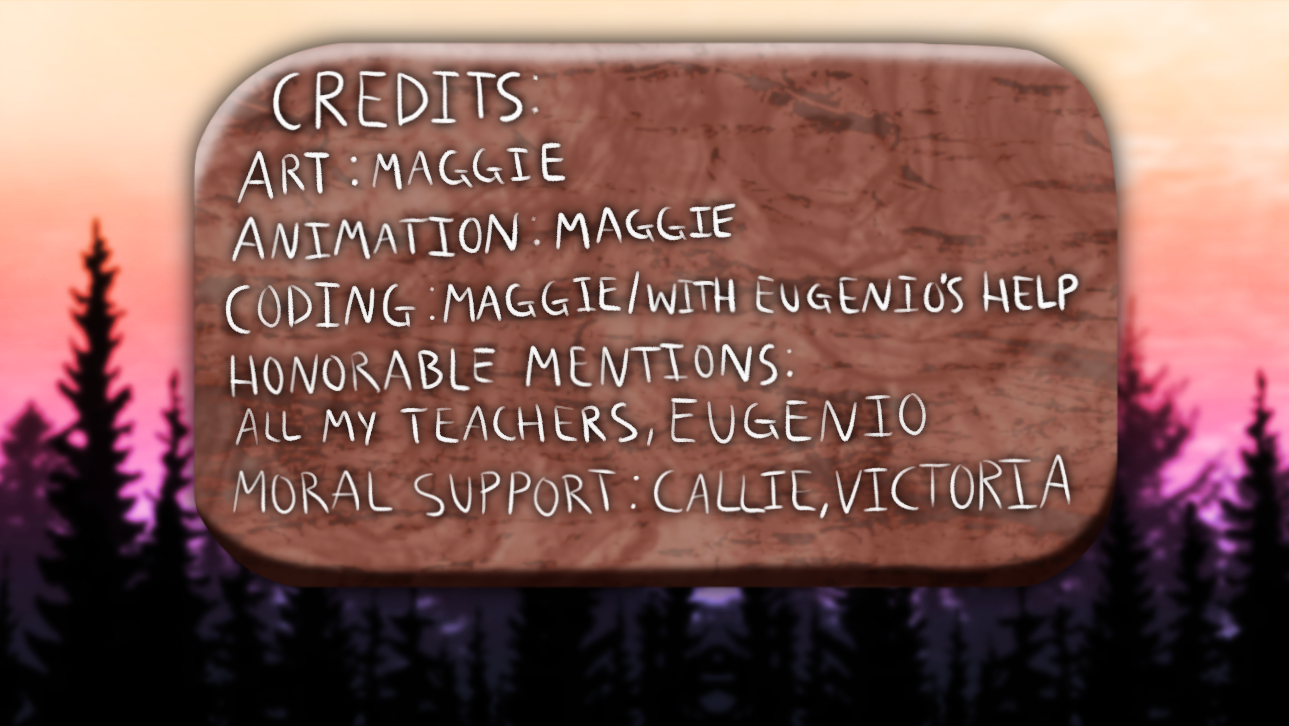 CREDITS:
ART: MAGGIE
ANIMATION: MAGGIE
CODING: MAGGIE/WITH EUGENIO'S HELP
HONORABLE MENTIONS:
ALL MY TEACHERS, EUGENIO
MORAL SUPPORT: CALLIE, VICTORIA